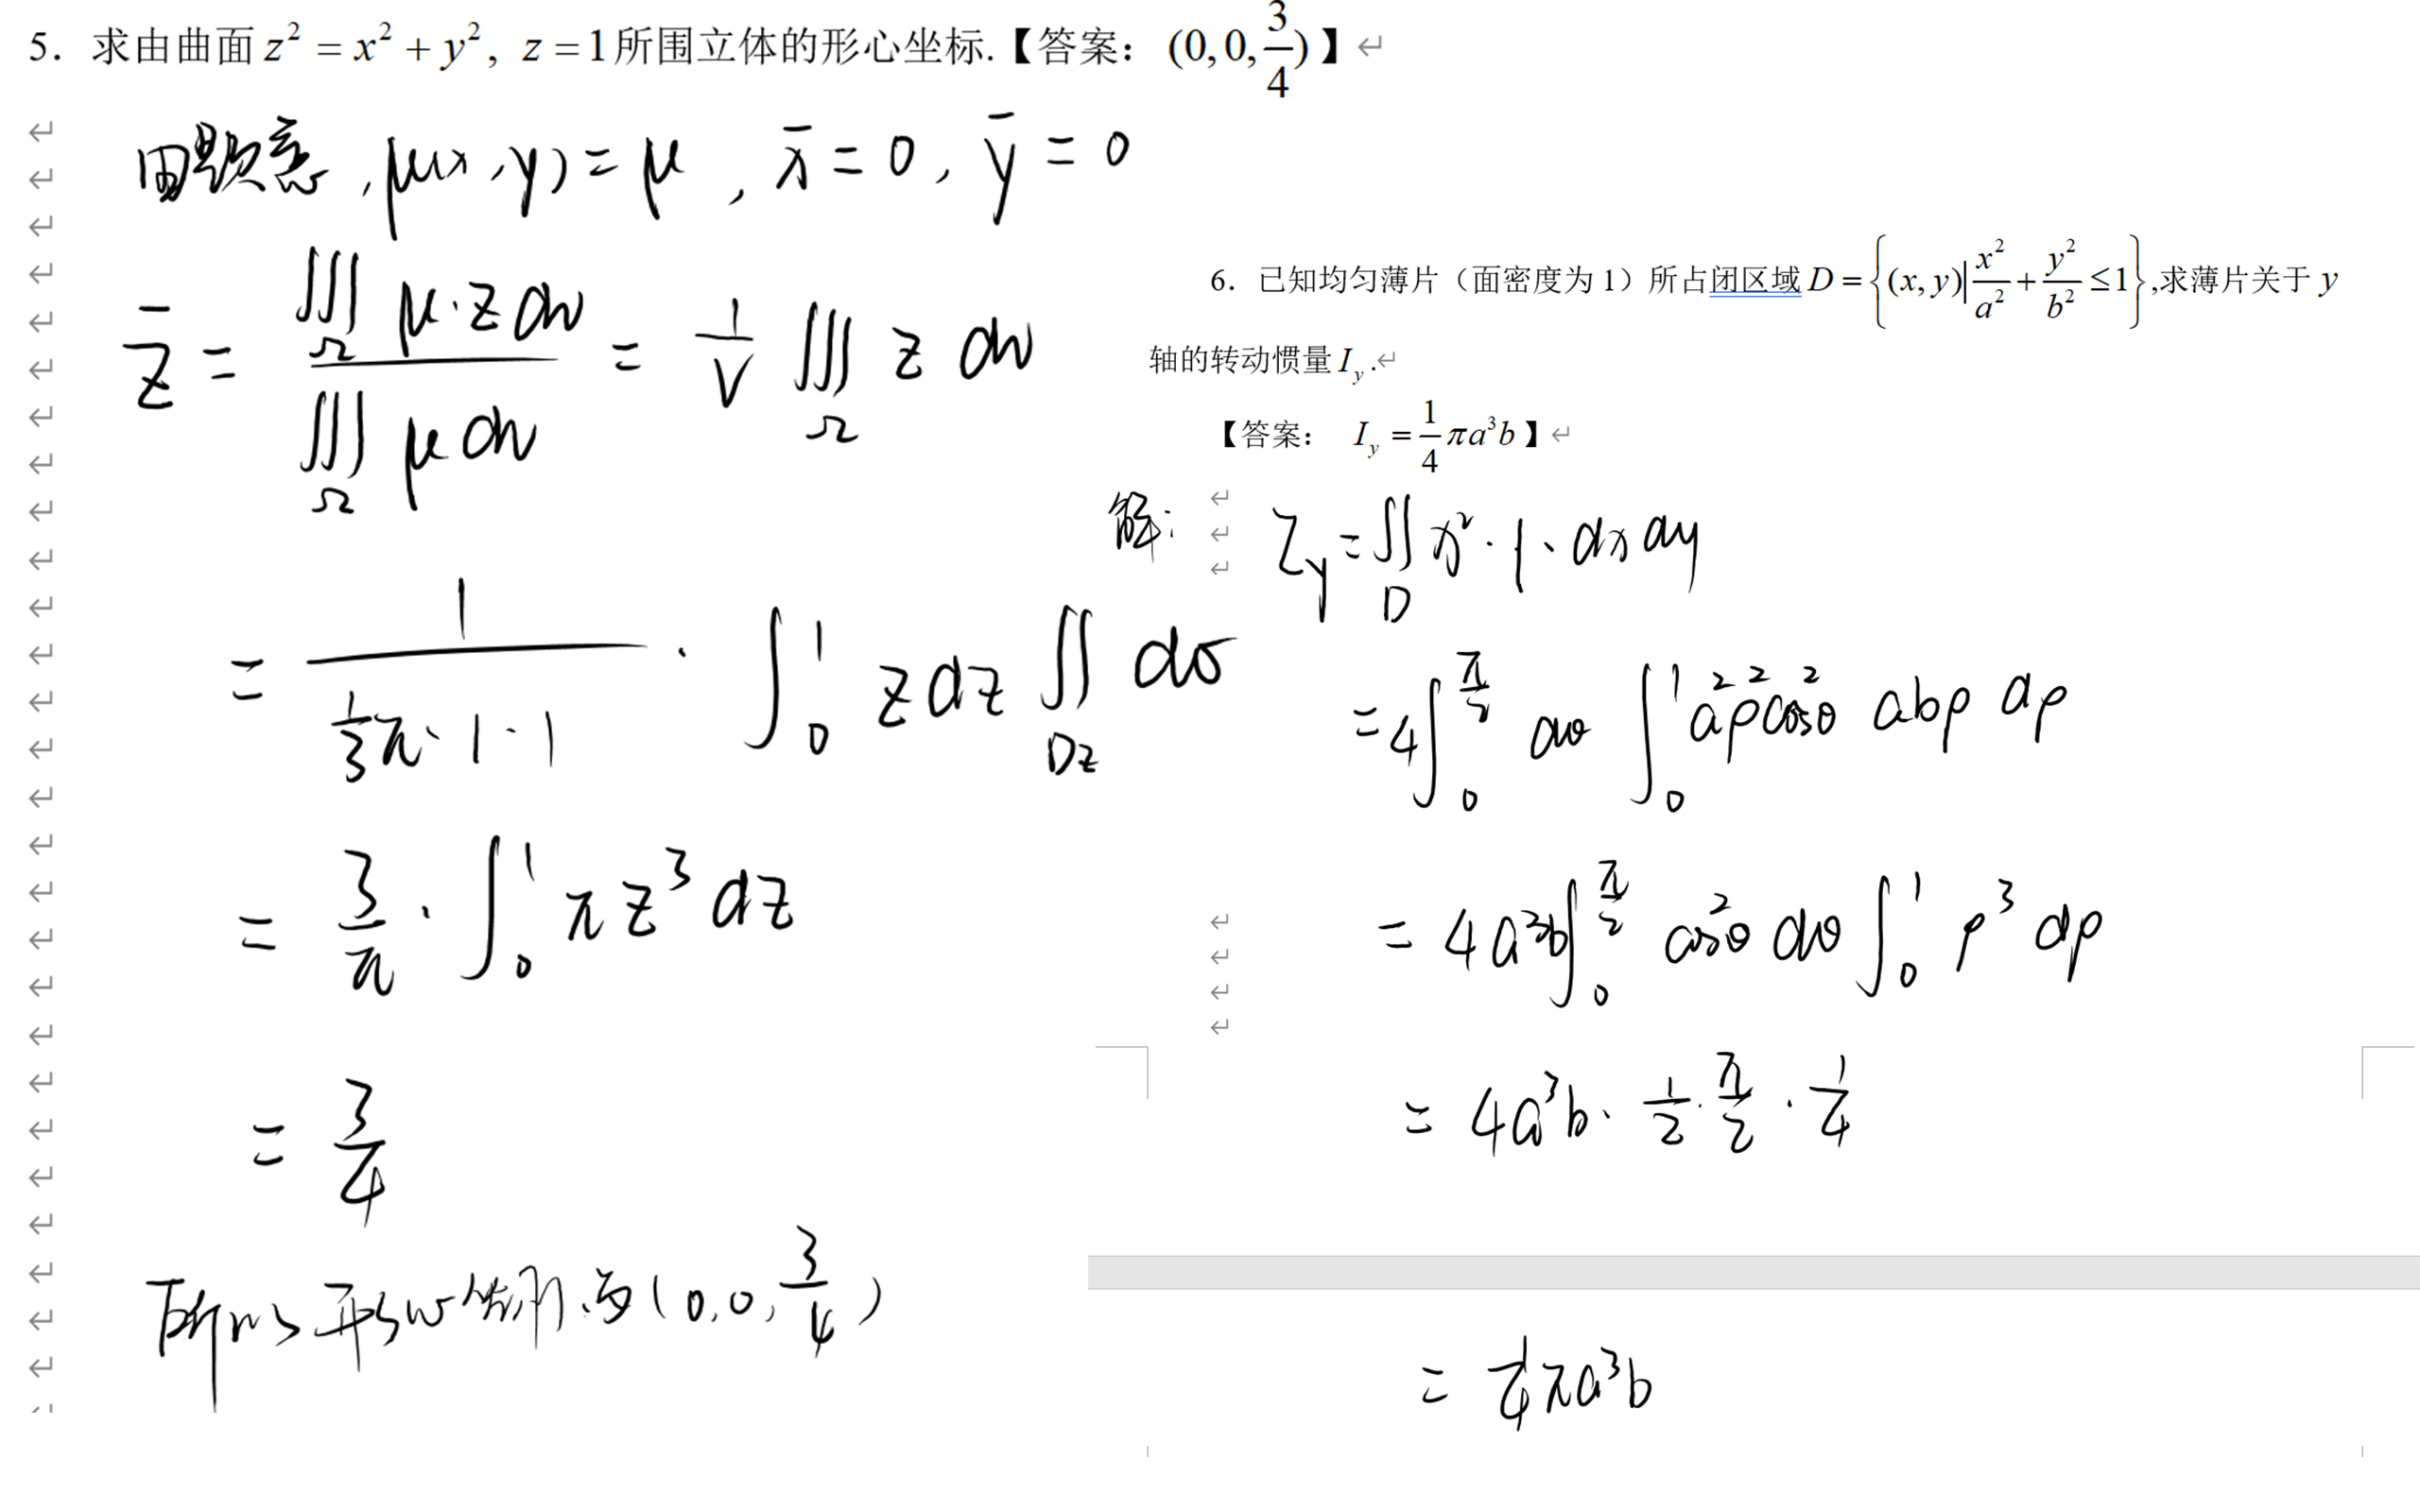 5. 求由曲面 z² = x² + y², z = 1 所围立体的形心坐标.【答案： (0, 0, 3/4) 】
由题意, μ(x, y) = μ , x̄ = 0, ȳ = 0
z̄ = ∭_Ω μ·z dv / ∭_Ω μ dv = 1/V ∭_Ω z dv
= 1/(1/3 π·1·1) · ∫₀¹ z dz ∬_Dz dσ
= 3/π · ∫₀¹ π z³ dz
= 3/4
所以形心坐标为 (0, 0, 3/4)
6. 已知均匀薄片（面密度为 1）所占闭区域 D = {(x, y)| x²/a² + y²/b² ≤ 1},求薄片关于 y
轴的转动惯量 I_y.
【答案： I_y = 1/4 πa³b 】
解: I_y = ∬_D x²·1·dx dy
= 4∫₀^(π/2) dθ ∫₀¹ a²ρ²cos²θ abρ dρ
= 4a³b ∫₀^(π/2) cos²θ dθ ∫₀¹ ρ³ dρ
= 4a³b · 1/2 · π/2 · 1/4
= 1/4 πa³b